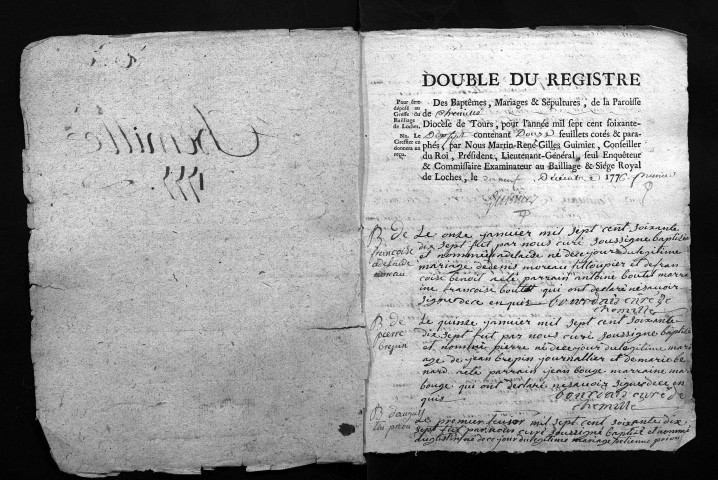 Chemillé
1777
DOUBLE DU REGISTRE
Pour être
déposé au
Greffe du
Bailliage
de Loches.
Na. Le
Greffier en
donnera un
reçu.
Des Baptêmes, Mariages & Sépultures, de la Paroisse
de Chemillé
Diocèse de Tours, pour l'année mil sept cent soixante-
Dixsept contenant Douze feuillets cotés & para-
phés, par Nous Martin-René-Gilles Guimier, Conseiller
du Roi, Président, Lieutenant-Général, seul Enquêteur
& Commissaire Examinateur au Bailliage & Siége Royal
de Loches, le Décembre 1776
Guimier
B de
francoise
adelaide
moreau
Le onze janvier mil sept cent soixante
dix sept fut par nous curé soussigné baptisée
et nommée adelaide né de ce jour du legitime
mariage de denis moreau et de fran
coise benoit a eté parrain antoine boutet marra
ine francoise boutet qui ont declaré ne savoir
signe de ce enquis curé de
chemille
B de
pierre
brepin
Le quinze janvier mil sept cent soixante
dix sept fut par nous curé soussigné baptisé
et nommé pierre né de ce jour du legitime mari
age de jean brepin journallier et de marie be
nard a eté parrain jean bouge marraine mar
bouge qui ont declaré ne savoir signer de ce en
quis curé de
chemille
B d'augus
tin priou
Le premier fevrier mil sept cent soixante dix
sept fut par nous curé soussigné baptisé et nommé
augustin né de ce jour du legitime mariage detienne priou